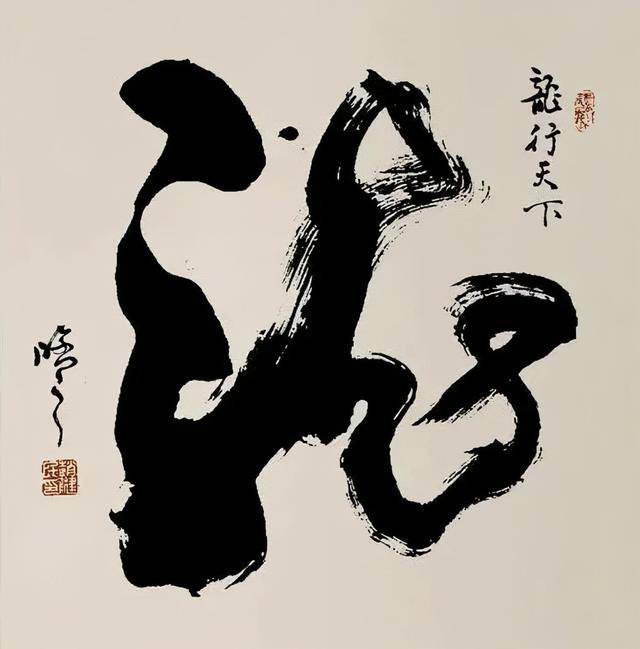 龍行天下
龍